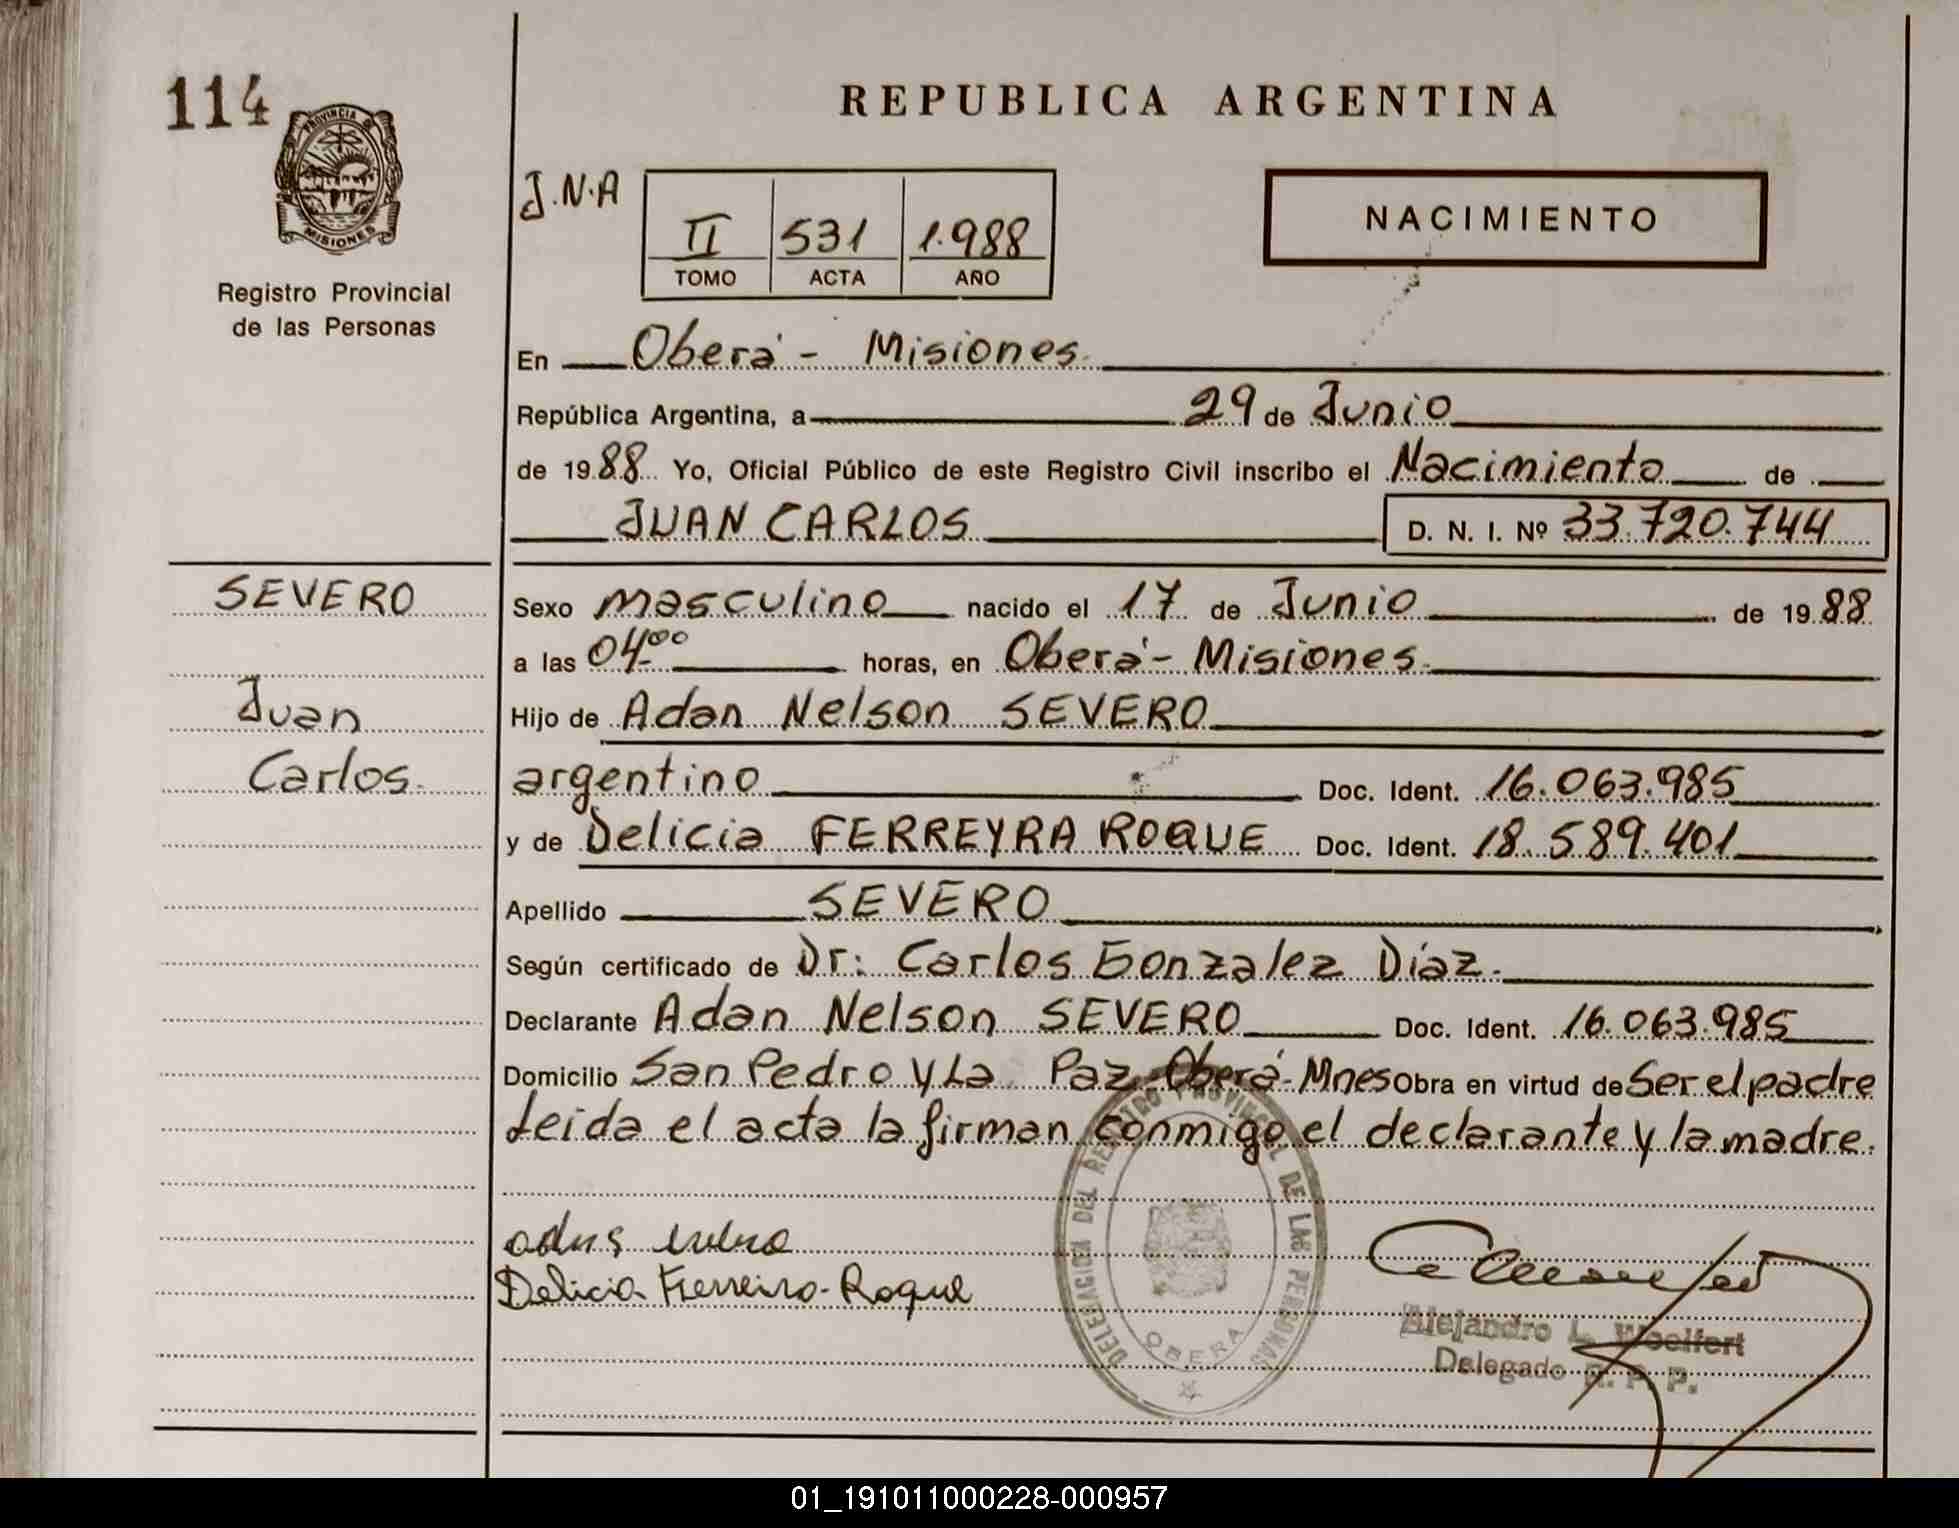 114
REPUBLICA ARGENTINA
PROVINCIA D
MISIONES
Registro Provincial
de las Personas
J.N.A
II 531 1.988
TOMO ACTA AÑO
NACIMIENTO
En Oberá - Misiones.
República Argentina, a 29 de Junio
de 1988 Yo, Oficial Público de este Registro Civil inscribo el Nacimiento de
JUAN CARLOS D. N. I. Nº 33.720.744
SEVERO
Juan
Carlos.
Sexo masculino nacido el 17 de Junio de 1988
a las 04.00 horas, en Oberá - Misiones.
Hijo de Adan Nelson SEVERO
argentino Doc. Ident. 16.063.985
y de Delicia FERREYRA ROQUE Doc. Ident. 18.589.401
Apellido SEVERO
Según certificado de Dr: Carlos Gonzalez Díaz.
Declarante Adan Nelson SEVERO Doc. Ident. 16.063.985
Domicilio San Pedro y La Paz-Oberá-Mnes Obra en virtud de Ser el padre
Leida el acta la firman conmigo el declarante y la madre.
Delicia Ferreira-Roque
DELEGACION DEL REGISTRO PROVINCIAL DE LAS PERSONAS
OBERA
Alejandro L. Woelfert
Delegado R. P. P.
01_191011000228-000957